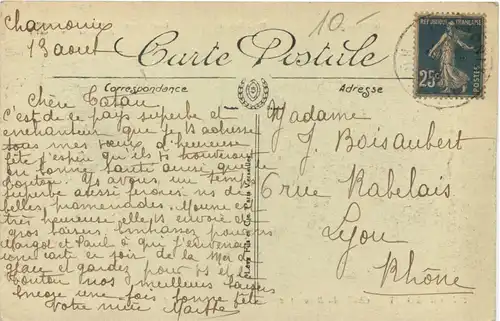 Chamonix
13 août
10.-
Carte Postale
RÉPUBLIQUE FRANÇAISE
25c
POSTES
Correspondance
Adresse
Chère Tatau
C'est de ce pays superbe et
enchanteur que je t'adresse
tous mes vœux d'heureuse
fête j'espère qu'ils te trouveront
en bonne santé ainsi que
Tonton. Ns avons un temps
superbe aussi faisons ns de
belles promenades. Moune est
très heureuse, elle ts envoie de
gros baisers. Embrasse pour ns
Margot et Paul à qui j'enverrai
une carte en soir de la Mer de
glace et gardez pour ts et
Tonton nos meilleurs baisers
Encore une fois bonne fête
Votre nièce Marthe
Madame
J. Boisaubert
6 rue Rabelais
Lyon
Rhône